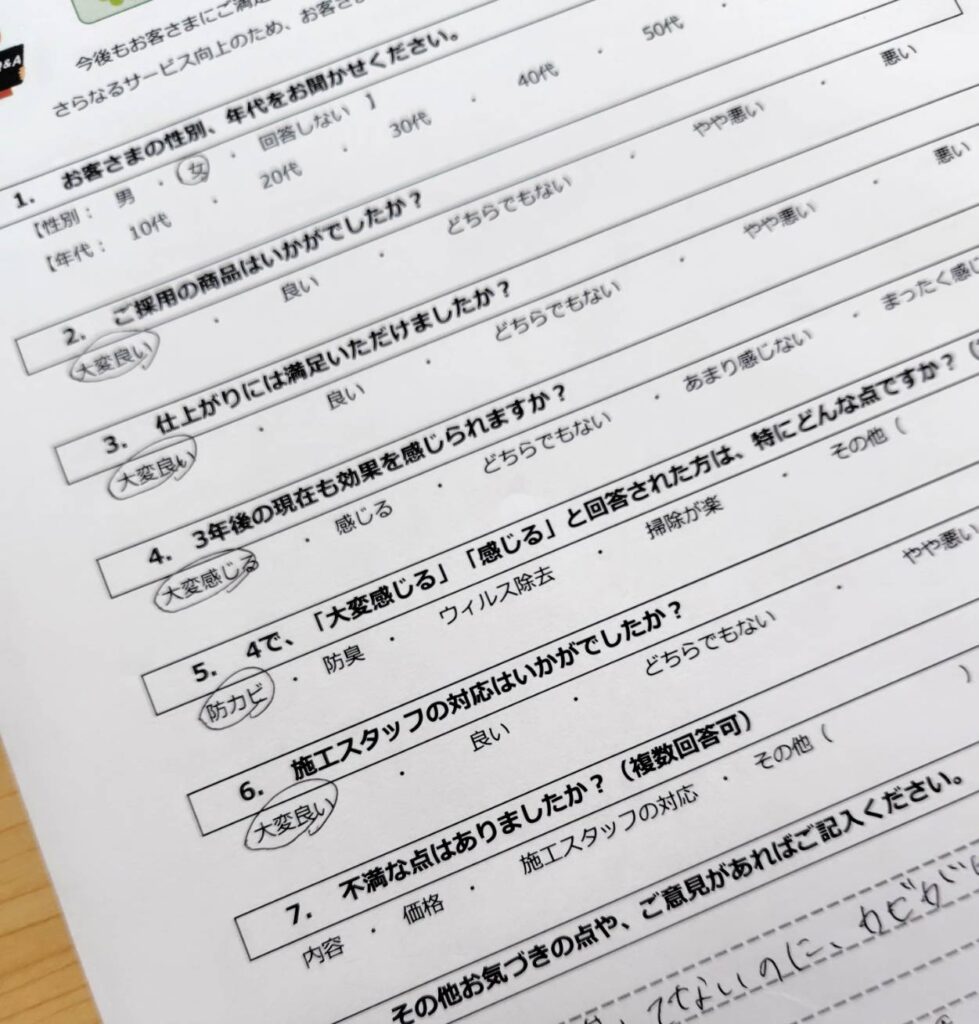 &A
今後もお客さまにご満足
さらなるサービス向上のため、お客さま
1. お客さまの性別、年代をお聞かせください。
【性別： 男 ・ 女 ・ 回答しない 】
【年代： 10代 ・ 20代 ・ 30代 ・ 40代 ・ 50代 ・
2. ご採用の商品はいかがでしたか？
大変良い ・ 良い ・ どちらでもない ・ やや悪い ・ 悪い
3. 仕上がりには満足いただけましたか？
大変良い ・ 良い ・ どちらでもない ・ やや悪い ・ 悪い
4. 3年後の現在も効果を感じられますか？
大変感じる ・ 感じる ・ どちらでもない ・ あまり感じない ・ まったく感じ
5. 4で、「大変感じる」「感じる」と回答された方は、特にどんな点ですか？（
防カビ ・ 防臭 ・ ウィルス除去 ・ 掃除が楽 ・ その他（
6. 施工スタッフの対応はいかがでしたか？
大変良い ・ 良い ・ どちらでもない ・ やや悪い
7. 不満な点はありましたか？（複数回答可）
内容 ・ 価格 ・ 施工スタッフの対応 ・ その他（ ）
その他お気づきの点や、ご意見があればご記入ください。
てないのに、カビが